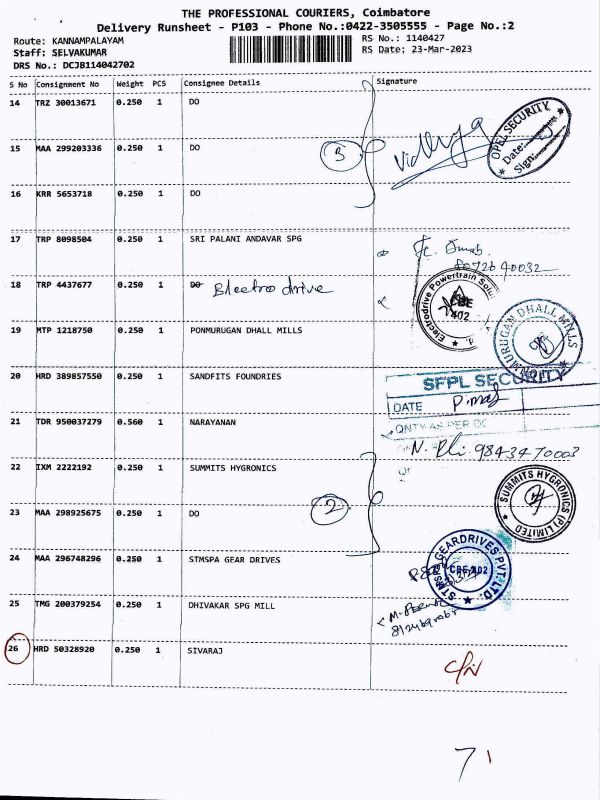 THE PROFESSIONAL COURIERS, Coimbatore
Delivery Runsheet - P103 - Phone No.:0422-3505555 - Page No.:2
Route: KANNAMPALAYAM
RS No.: 1140427
Staff: SELVAKUMAR
RS Date: 23-Mar-2023
DRS No.: DCJB114042702
S No Consignment No Weight PCS Consignee Details Signature
14 TRZ 30013671 0.250 1 DO
OPEL SECURITY
Date:
Sign:
15 MAA 299203336 0.250 1 DO 3 Vidhya
16 KRR 5653718 0.250 1 DO
17 TRP 8098504 0.250 1 SRI PALANI ANDAVAR SPG
18 TRP 4437677 0.250 1 DO Electro drive
Electrodrive Powertrain
CBE
402
19 MTP 1218750 0.250 1 PONMURUGAN DHALL MILLS
PONMURUGAN DHALL MILLS
20 HRD 389857550 0.250 1 SANDFITS FOUNDRIES
SFPL SECURITY
DATE
QNTY AS PER DC
21 TDR 950037279 0.560 1 NARAYANAN
9843470003
22 IXM 2222192 0.250 1 SUMMITS HYGRONICS
SUMMITS HYGRONICS (P) LIMITED
23 MAA 298925675 0.250 1 DO 2
24 MAA 296748296 0.250 1 STMSPA GEAR DRIVES
STMSPA GEARDRIVES PVT. LTD.
CBE-402
25 TMG 200379254 0.250 1 DHIVAKAR SPG MILL
26 HRD 50328920 0.250 1 SIVARAJ
71